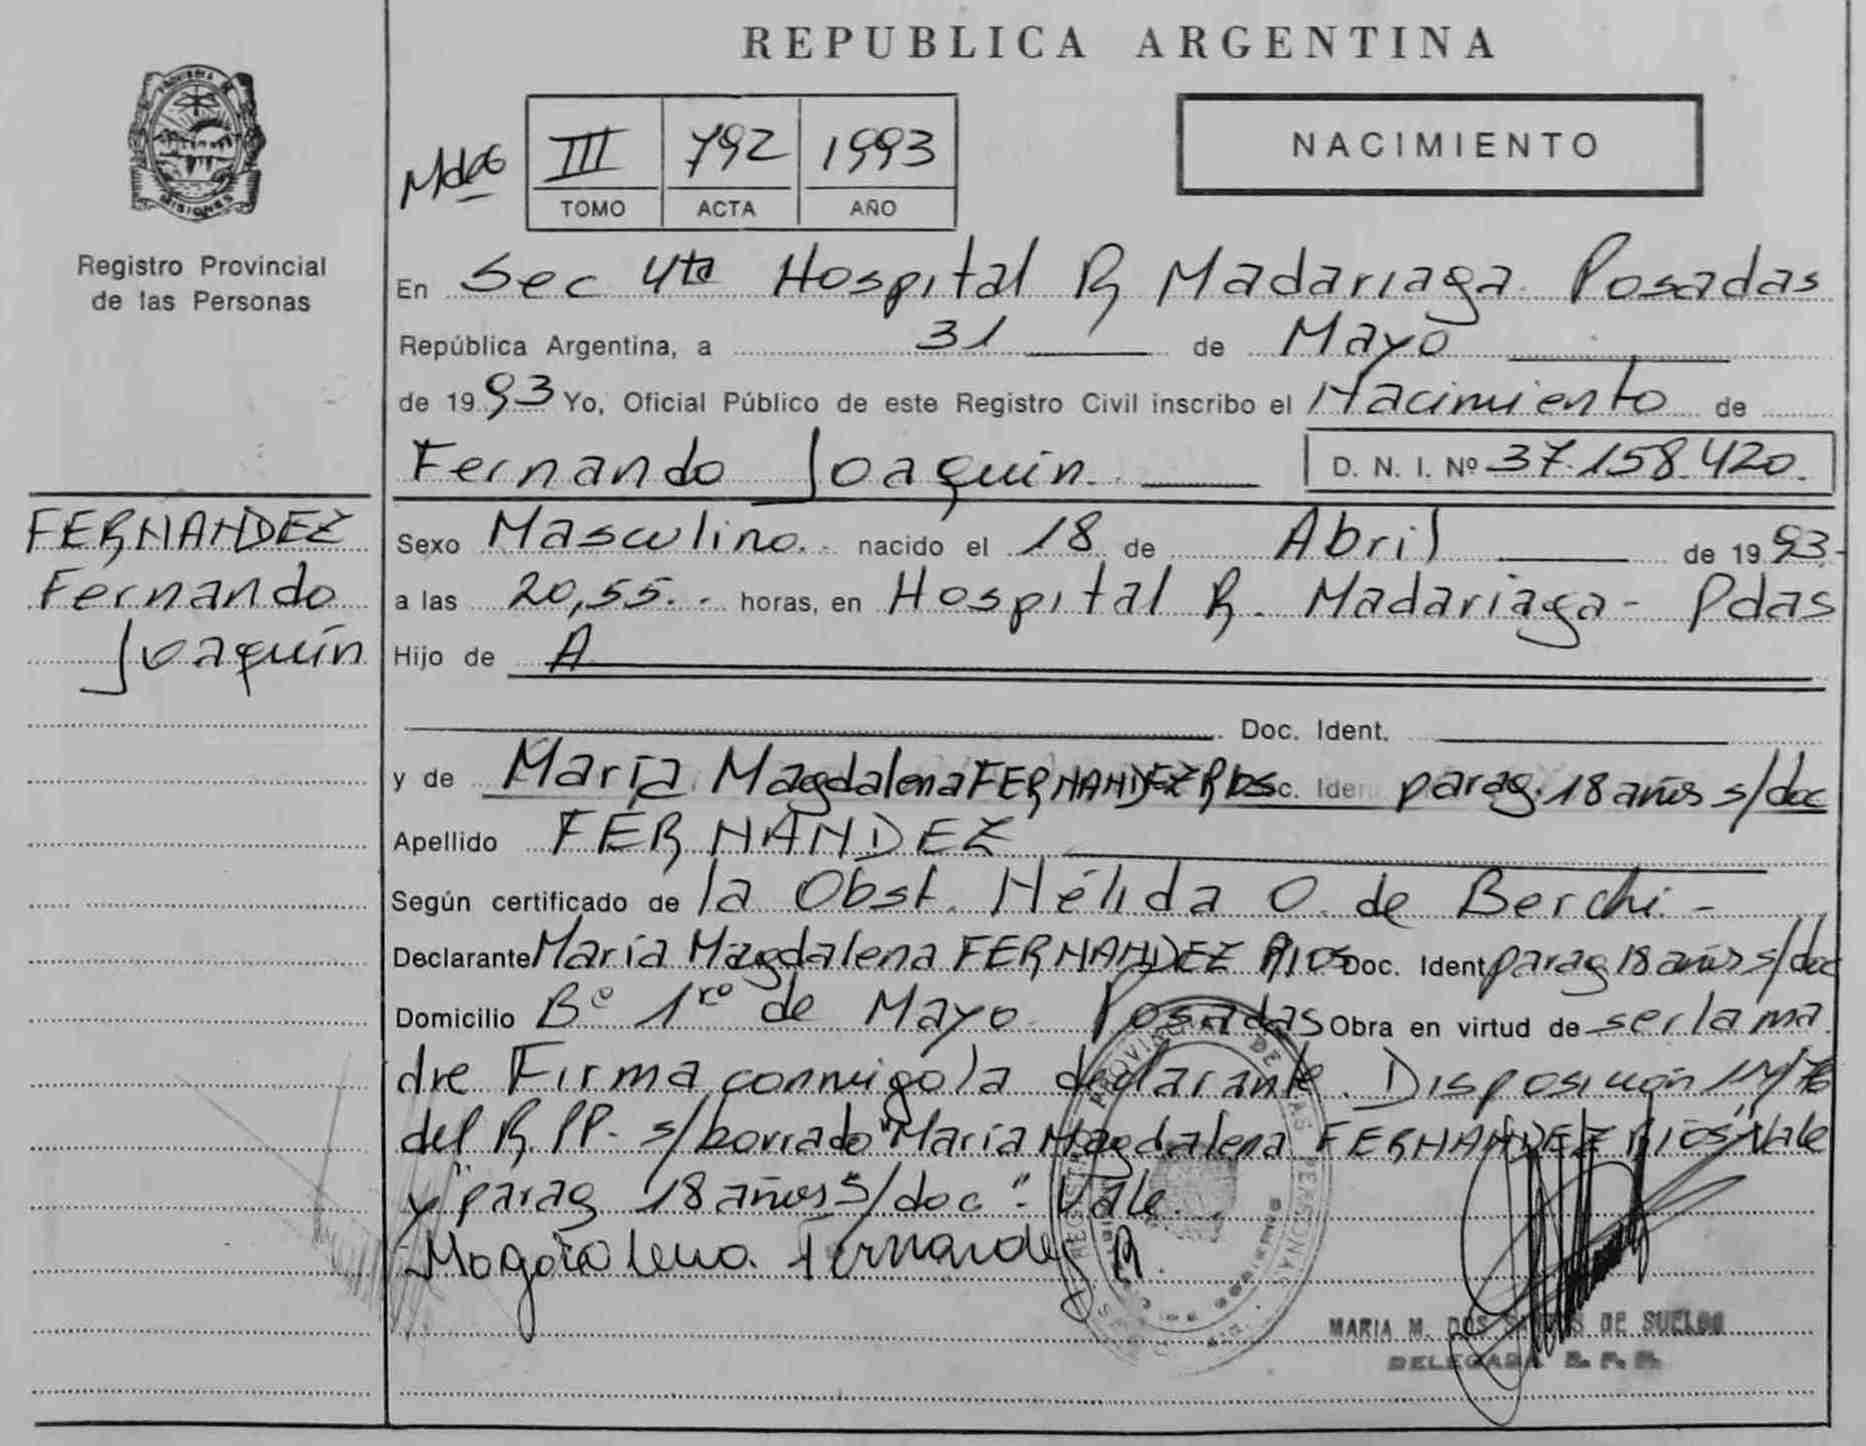 REPUBLICA ARGENTINA
MISIONES
Registro Provincial
de las Personas
III 792 1993
TOMO ACTA AÑO
NACIMIENTO
En Sec 4ta Hospital R Madariaga Posadas
República Argentina, a 31 de Mayo
de 1993 Yo, Oficial Público de este Registro Civil inscribo el Nacimiento de
Fernando Joaquín D. N. I. Nº 37.158.420.
FERNANDEZ
Fernando
Joaquín
Sexo Masculino. nacido el 18 de Abril de 1993
a las 20,55 horas, en Hospital R. Madariaga - Pdas
Hijo de A
Doc. Ident.
y de María Magdalena FERNANDEZ RIOS Doc. Iden parag. 18 años s/doc
Apellido FERNANDEZ
Según certificado de la Obst. Nélida O. de Berchi -
Declarante María Magdalena FERNANDEZ RIOS Doc. Ident parag 18 años s/doc
Domicilio Bº 1ro de Mayo Posadas Obra en virtud de ser la ma
dre Firma conmigo la declarante. Disposición
del R.PP. s/borrado "María Magdalena FERNANDEZ RIOS" Vale
y "parag 18 años s/doc". Vale.
Magdalena Fernandez R.
MARIA M. DOS SANTOS DE SUELDO
DELEGADA R. P. P.